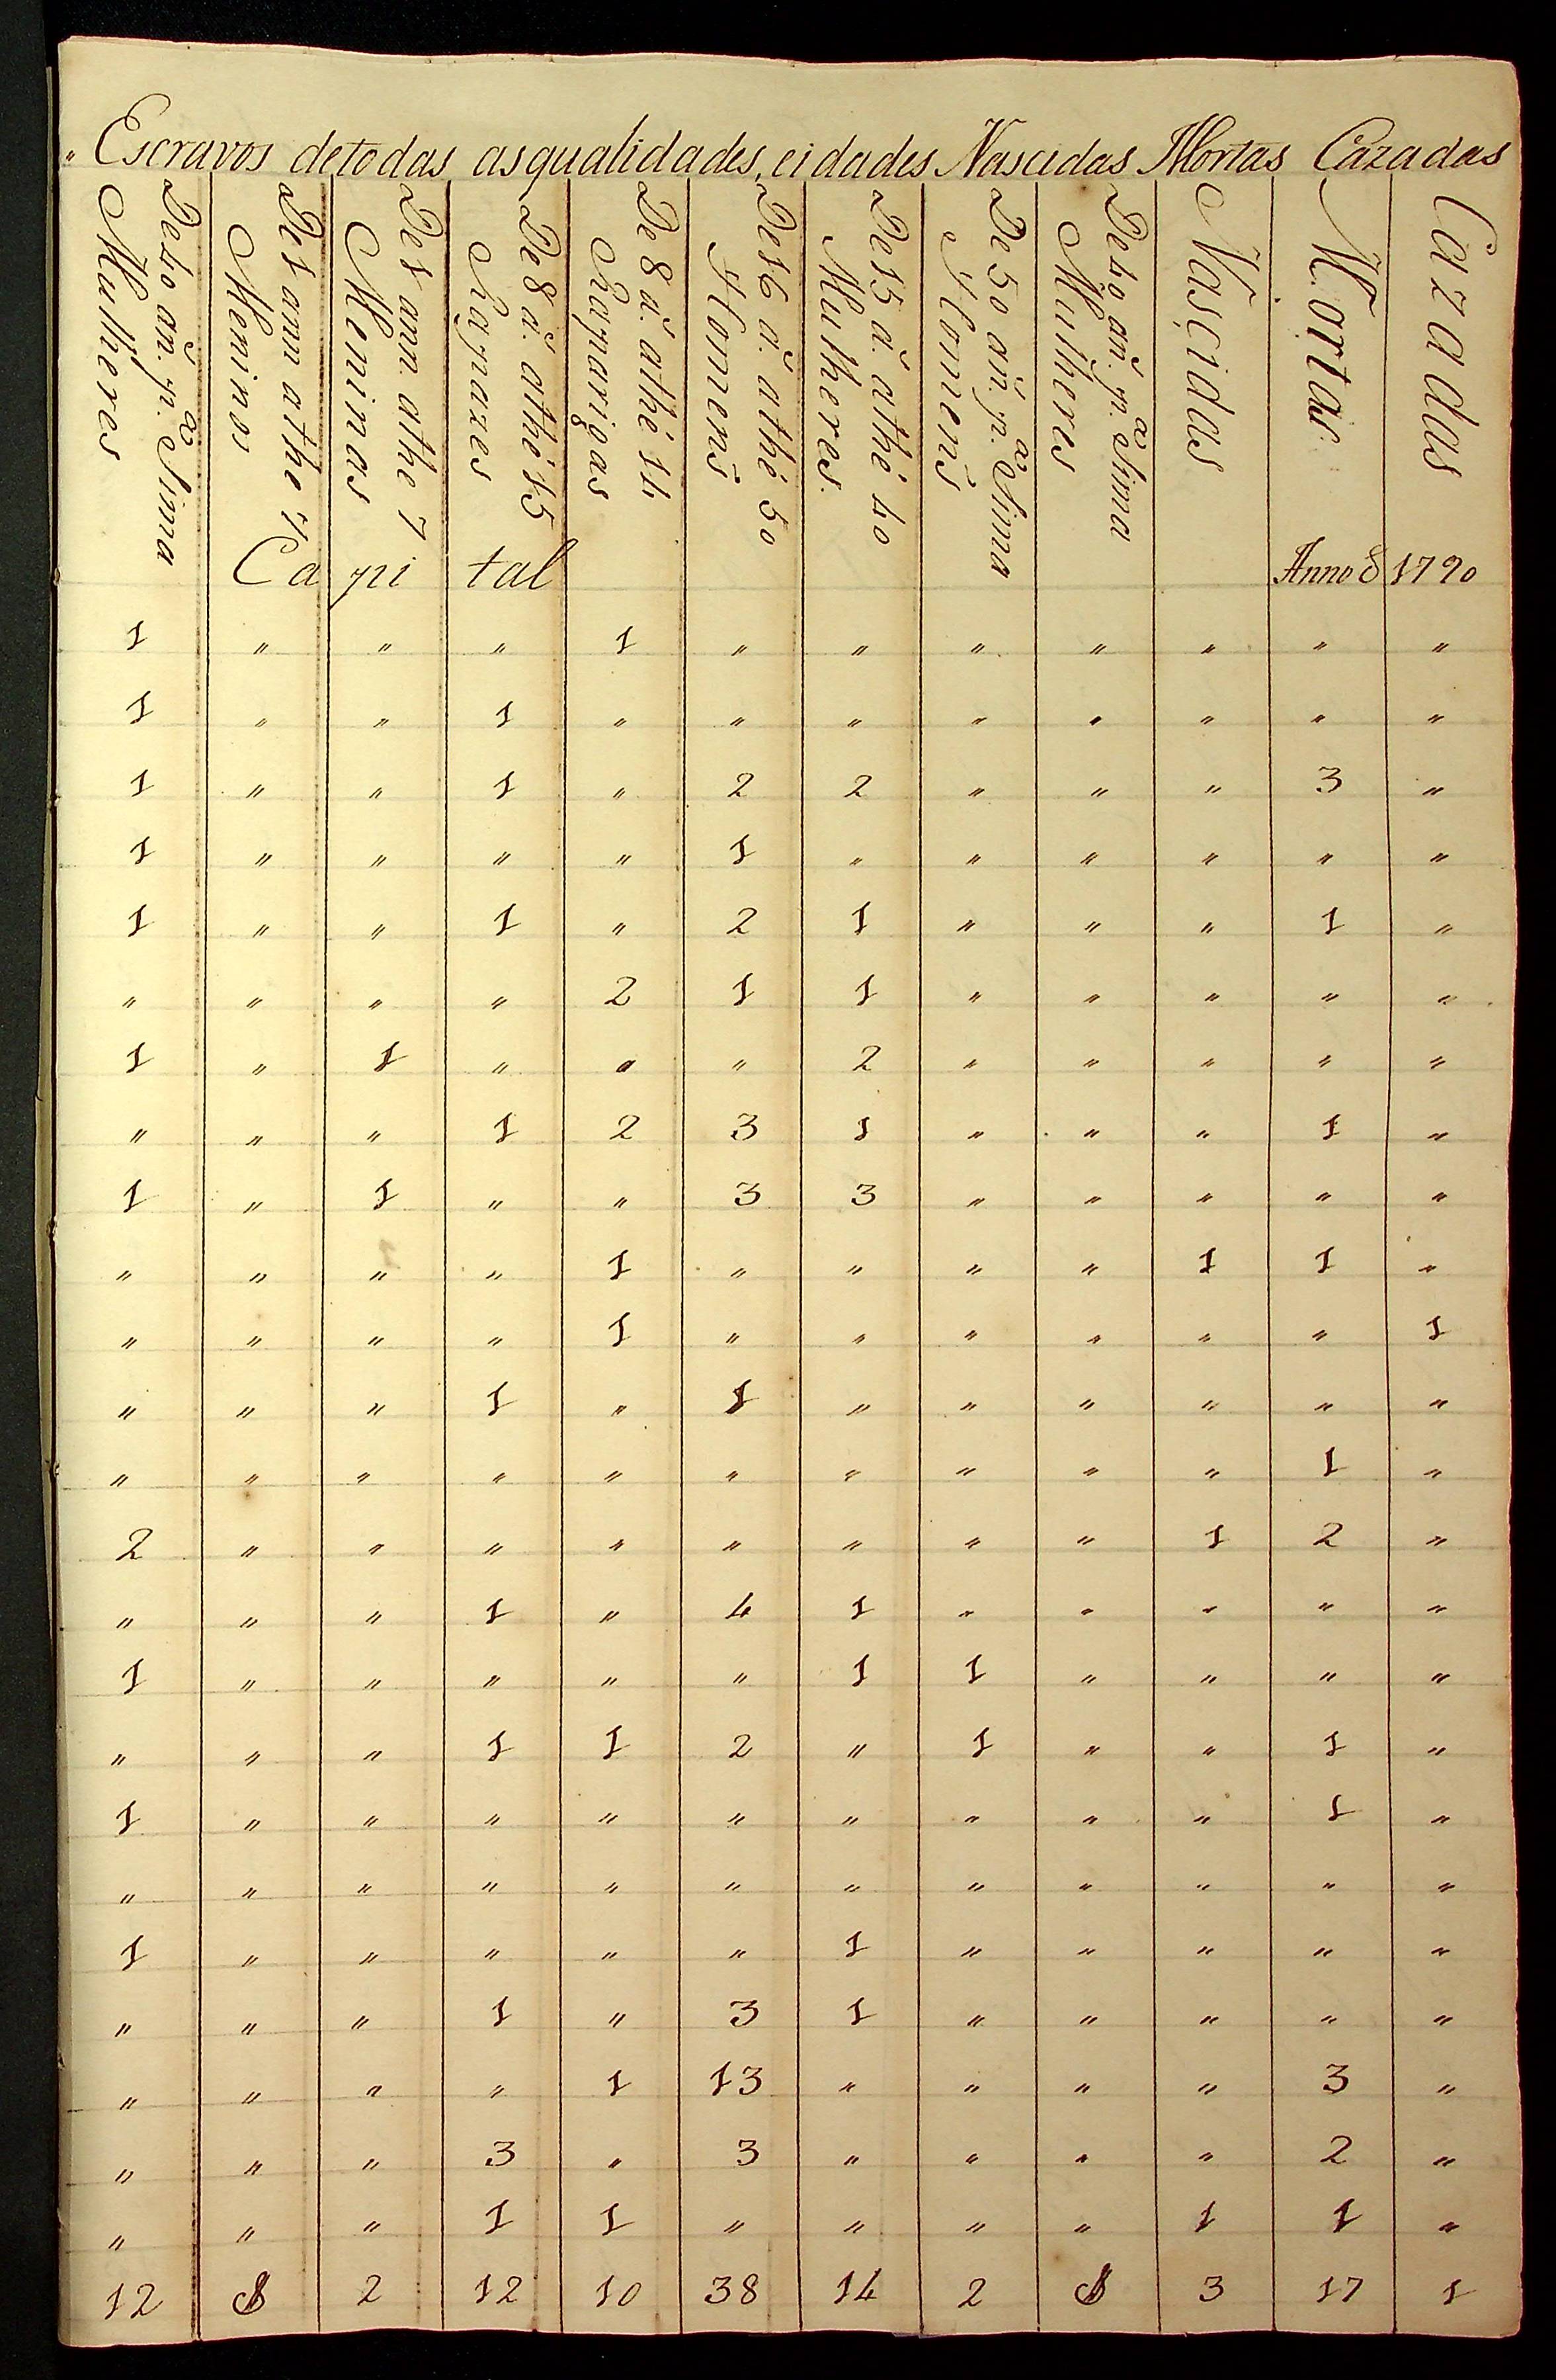 „ Escravos detodas asqualidades, eidades Nascidas Mortas Cazadas
De 40 an. p.a Sima Mulheres
De 1 ann athe 7 Meninos
De 1 ann. athe 7 Meninas
De 8 a. athé 15 Rapazes
De 8 a. athé 14 Raparigas
De 16 a. athé 50 Homens
De 15 a. athé 40 Mulheres.
De 50 an. p.a Sima Homens
De 40 an. p.a Sima Mulheres
Nascidas
Mortas
Cazadas
Capital Anno 8 1790
1 „ „ „ 1 „ „ „ „ „ „ „
1 „ „ 1 „ „ „ „ „ „ „ „
1 „ „ 1 „ 2 2 „ „ „ 3 „
1 „ „ „ „ 1 „ „ „ „ „ „
1 „ „ 1 „ 2 1 „ „ „ 1 „
„ „ „ „ 2 1 1 „ „ „ „ „
1 „ 1 „ „ „ 2 „ „ „ „ „
„ „ „ 1 2 3 1 „ „ „ 1 „
1 „ 1 „ „ 3 3 „ „ „ „ „
„ „ „ „ 1 „ „ „ „ 1 1 „
„ „ „ „ 1 „ „ „ „ „ „ 1
„ „ „ 1 „ 1 „ „ „ „ „ „
„ „ „ „ „ „ „ „ „ „ 1 „
2 „ „ „ „ „ „ „ „ 1 2 „
„ „ „ 1 „ 4 1 „ „ „ „ „
1 „ „ „ „ „ 1 1 „ „ „ „
„ „ „ 1 1 2 „ 1 „ „ 1 „
1 „ „ „ „ „ „ „ „ „ 1 „
„ „ „ „ „ „ „ „ „ „ „ „
1 „ „ „ „ „ 1 „ „ „ „ „
„ „ „ 1 „ 3 1 „ „ „ „ „
„ „ „ „ 1 13 „ „ „ „ 3 „
„ „ „ 3 „ 3 „ „ „ „ 2 „
„ „ „ 1 1 „ „ „ „ 1 1 „
12 2 12 10 38 14 2 3 17 1